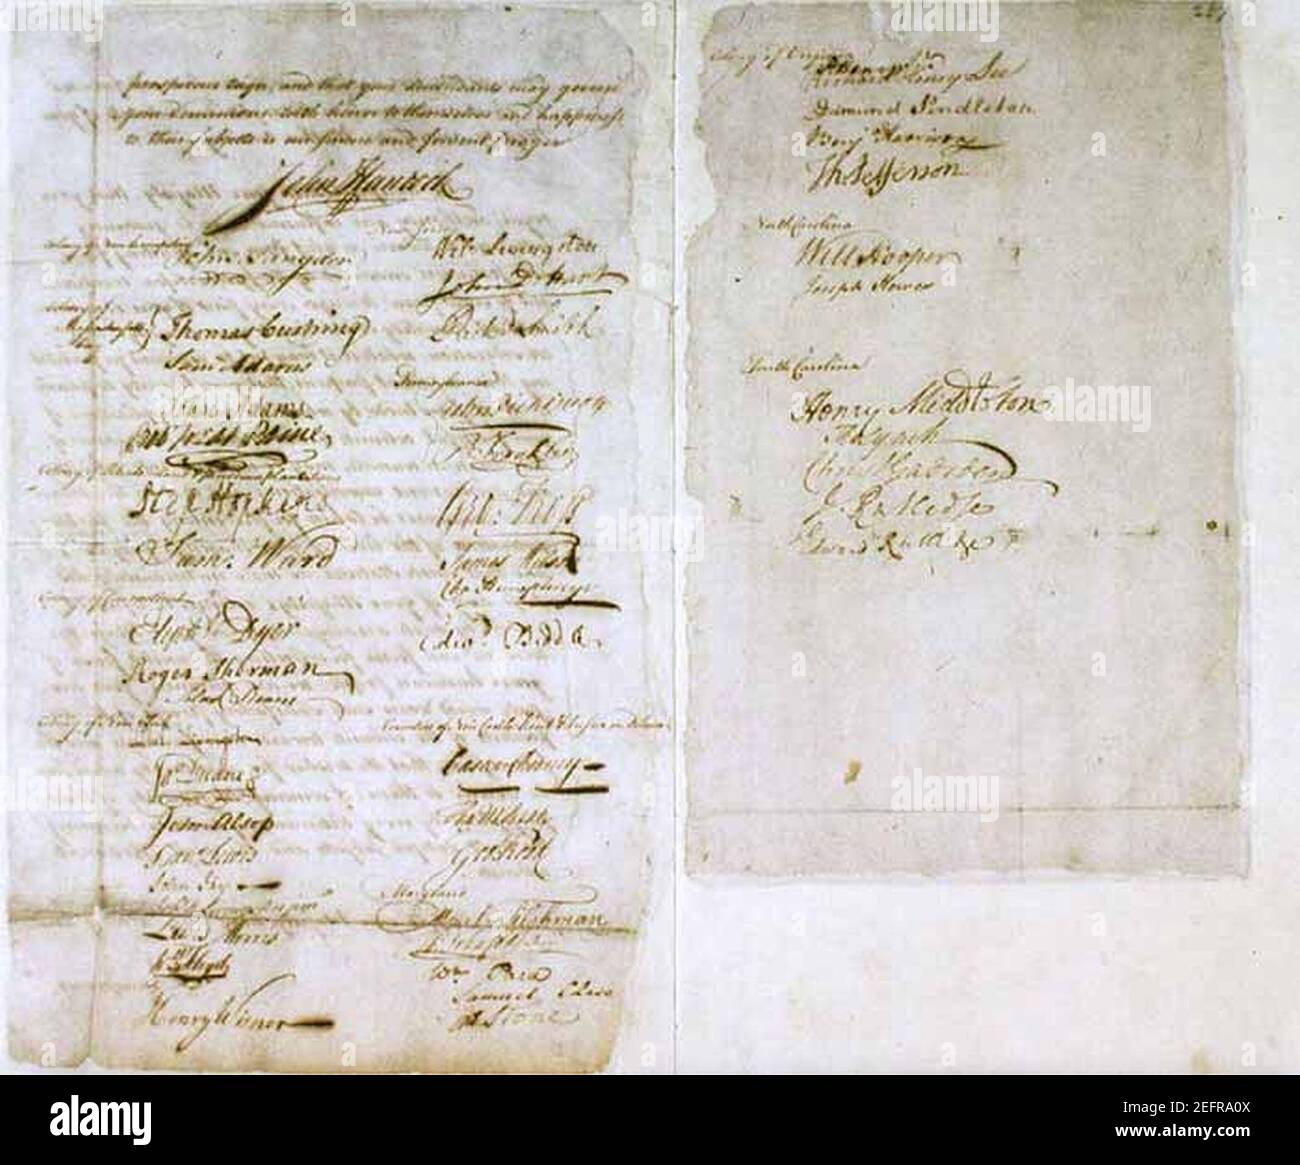 prosperous reign, and that your descendants may govern
your dominions with honor to themselves and happiness
to their subjects is our sincere and fervent prayer
John Hancock
Colony of New Hampshire
John Langdon
Thomas Cushing
Sam Adams
John Adams
Rob Treat Paine
Step Hopkins
Sam: Ward
Elipht Dyer
Roger Sherman
Silas Deane
Colony of New York
Jas Duane
John Alsop
Fran Lewis
John Jay
Lewis Morris
Wm Floyd
Henry Wisner
New Jersey
Wil Livingston
John D Hart
Richd Smith
Pennsylvania
John Dickinson
B Franklin
Geo: Ross
James Wilson
Cha Humphreys
Edwd Biddle
Counties of New Castle Kent & Sussex on Delaware
Caesar Rodney
Tho M:Kean
Geo Read
Maryland
Mat. Tilghman
Wm Paca
Samuel Chase
T Stone
Colony of Virginia
P Henry Jr
Richard Henry Lee
Edmund Pendleton
Benj Harrison
Th Jefferson
North Carolina
Will Hooper
Joseph Hewes
South Carolina
Henry Middleton
Tho Lynch
Christ Gadsden
J. Rutledge
Edward Rutledge
alamy
Image ID: 2EFRA0X
www.alamy.com